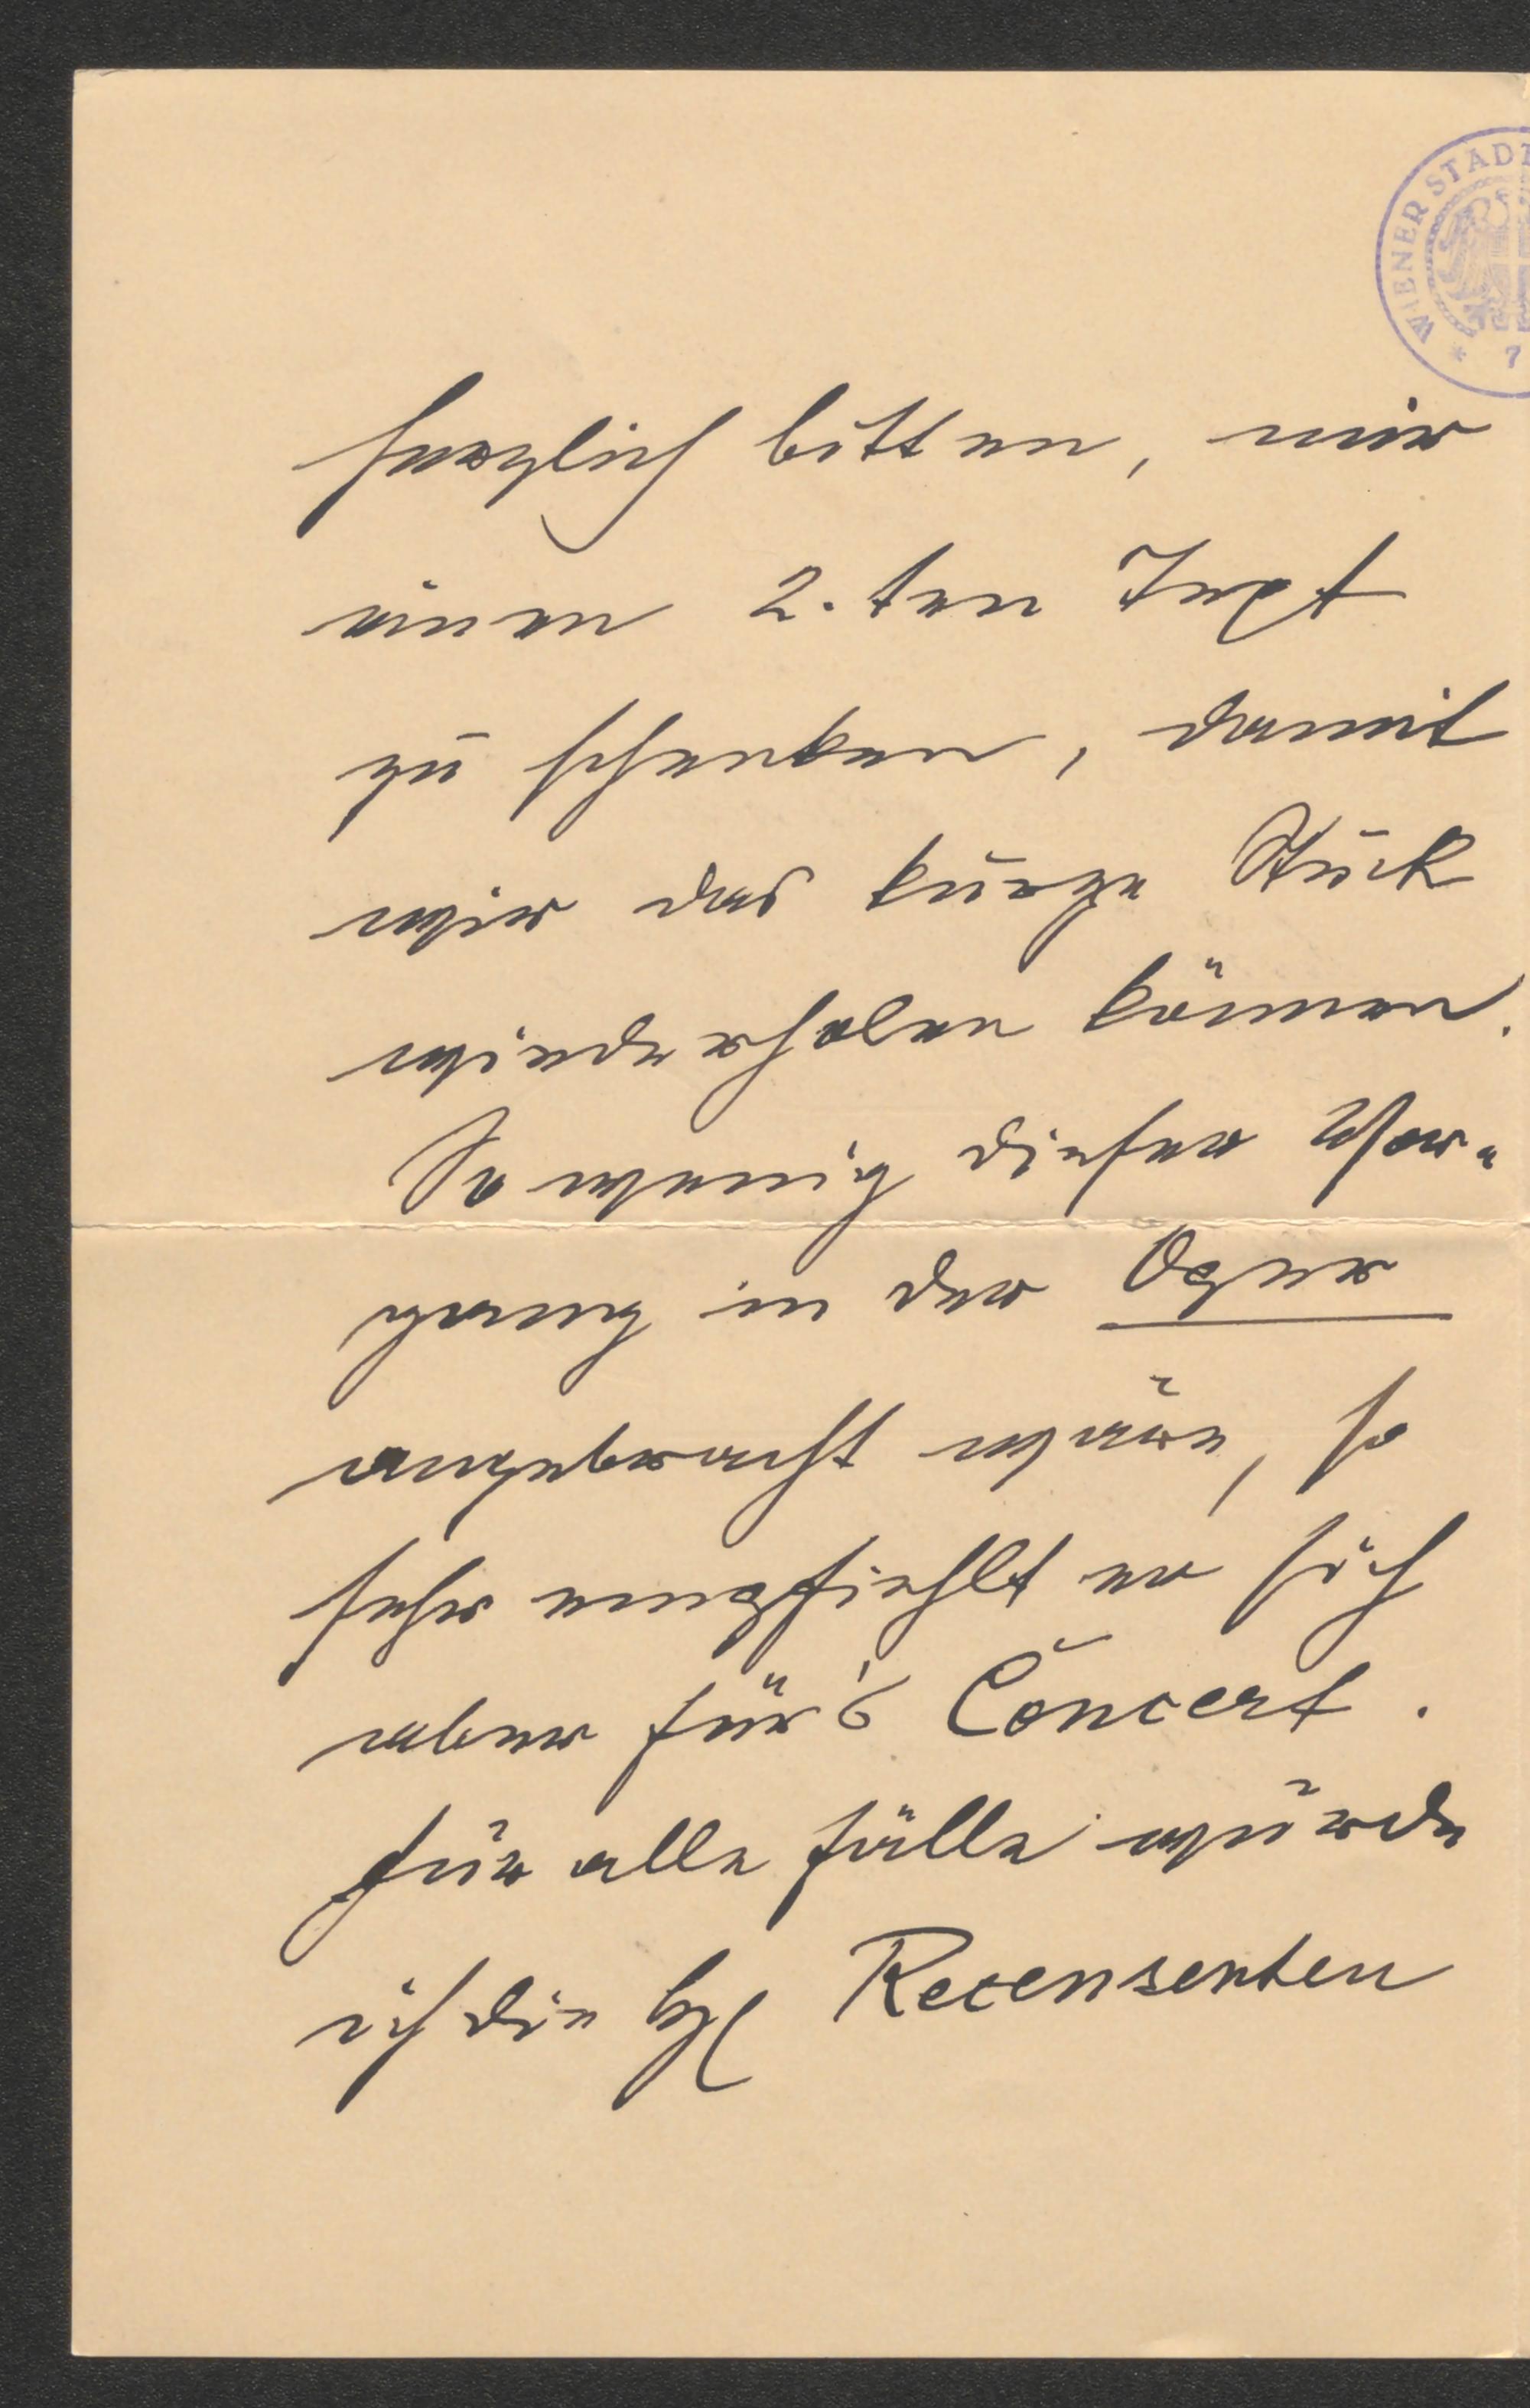 WIENER STADT
* 7
herzlich bitten, mir
einen 2.ten Text
zu schenken, damit
wir das kurze Stück
wiederholen können.
So wenig dieser Vor-
gang in der Oper
angebracht wäre, so
sehr empfiehlt er sich
aber für's Concert.
Für alle Fälle würde
ich die HH Recensenten